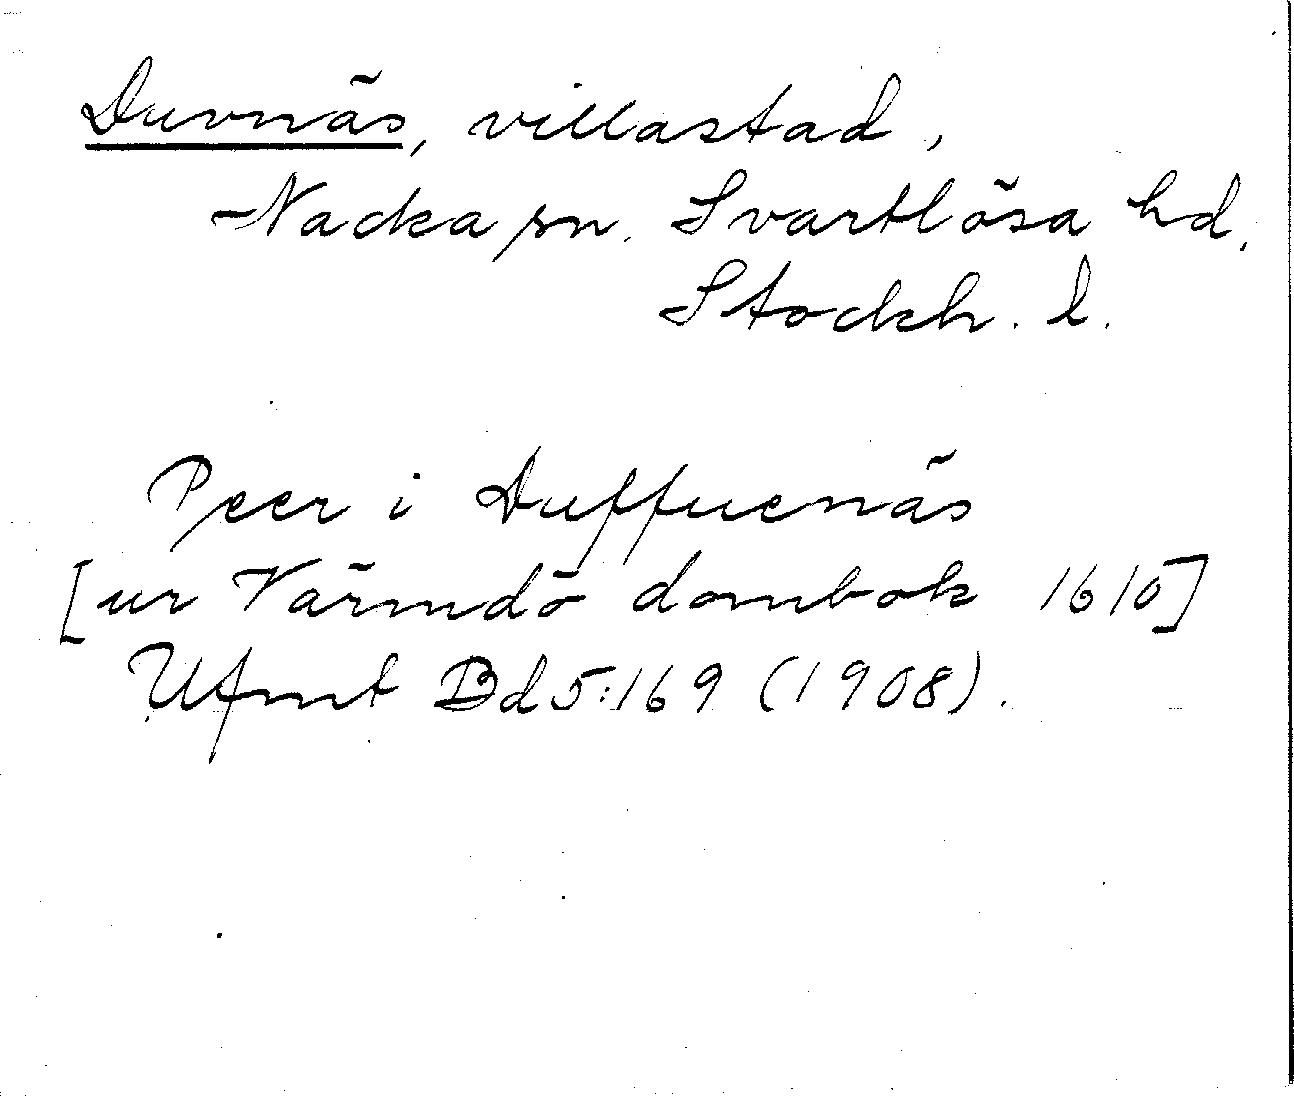 Duvnäs, villastad,
Nacka sn. Svartlösa hd,
Stockh. l.
Peer i Duffuenäs
[ur Värmdö dombok 1610]
Ufmt Bd 5:169 (1908).